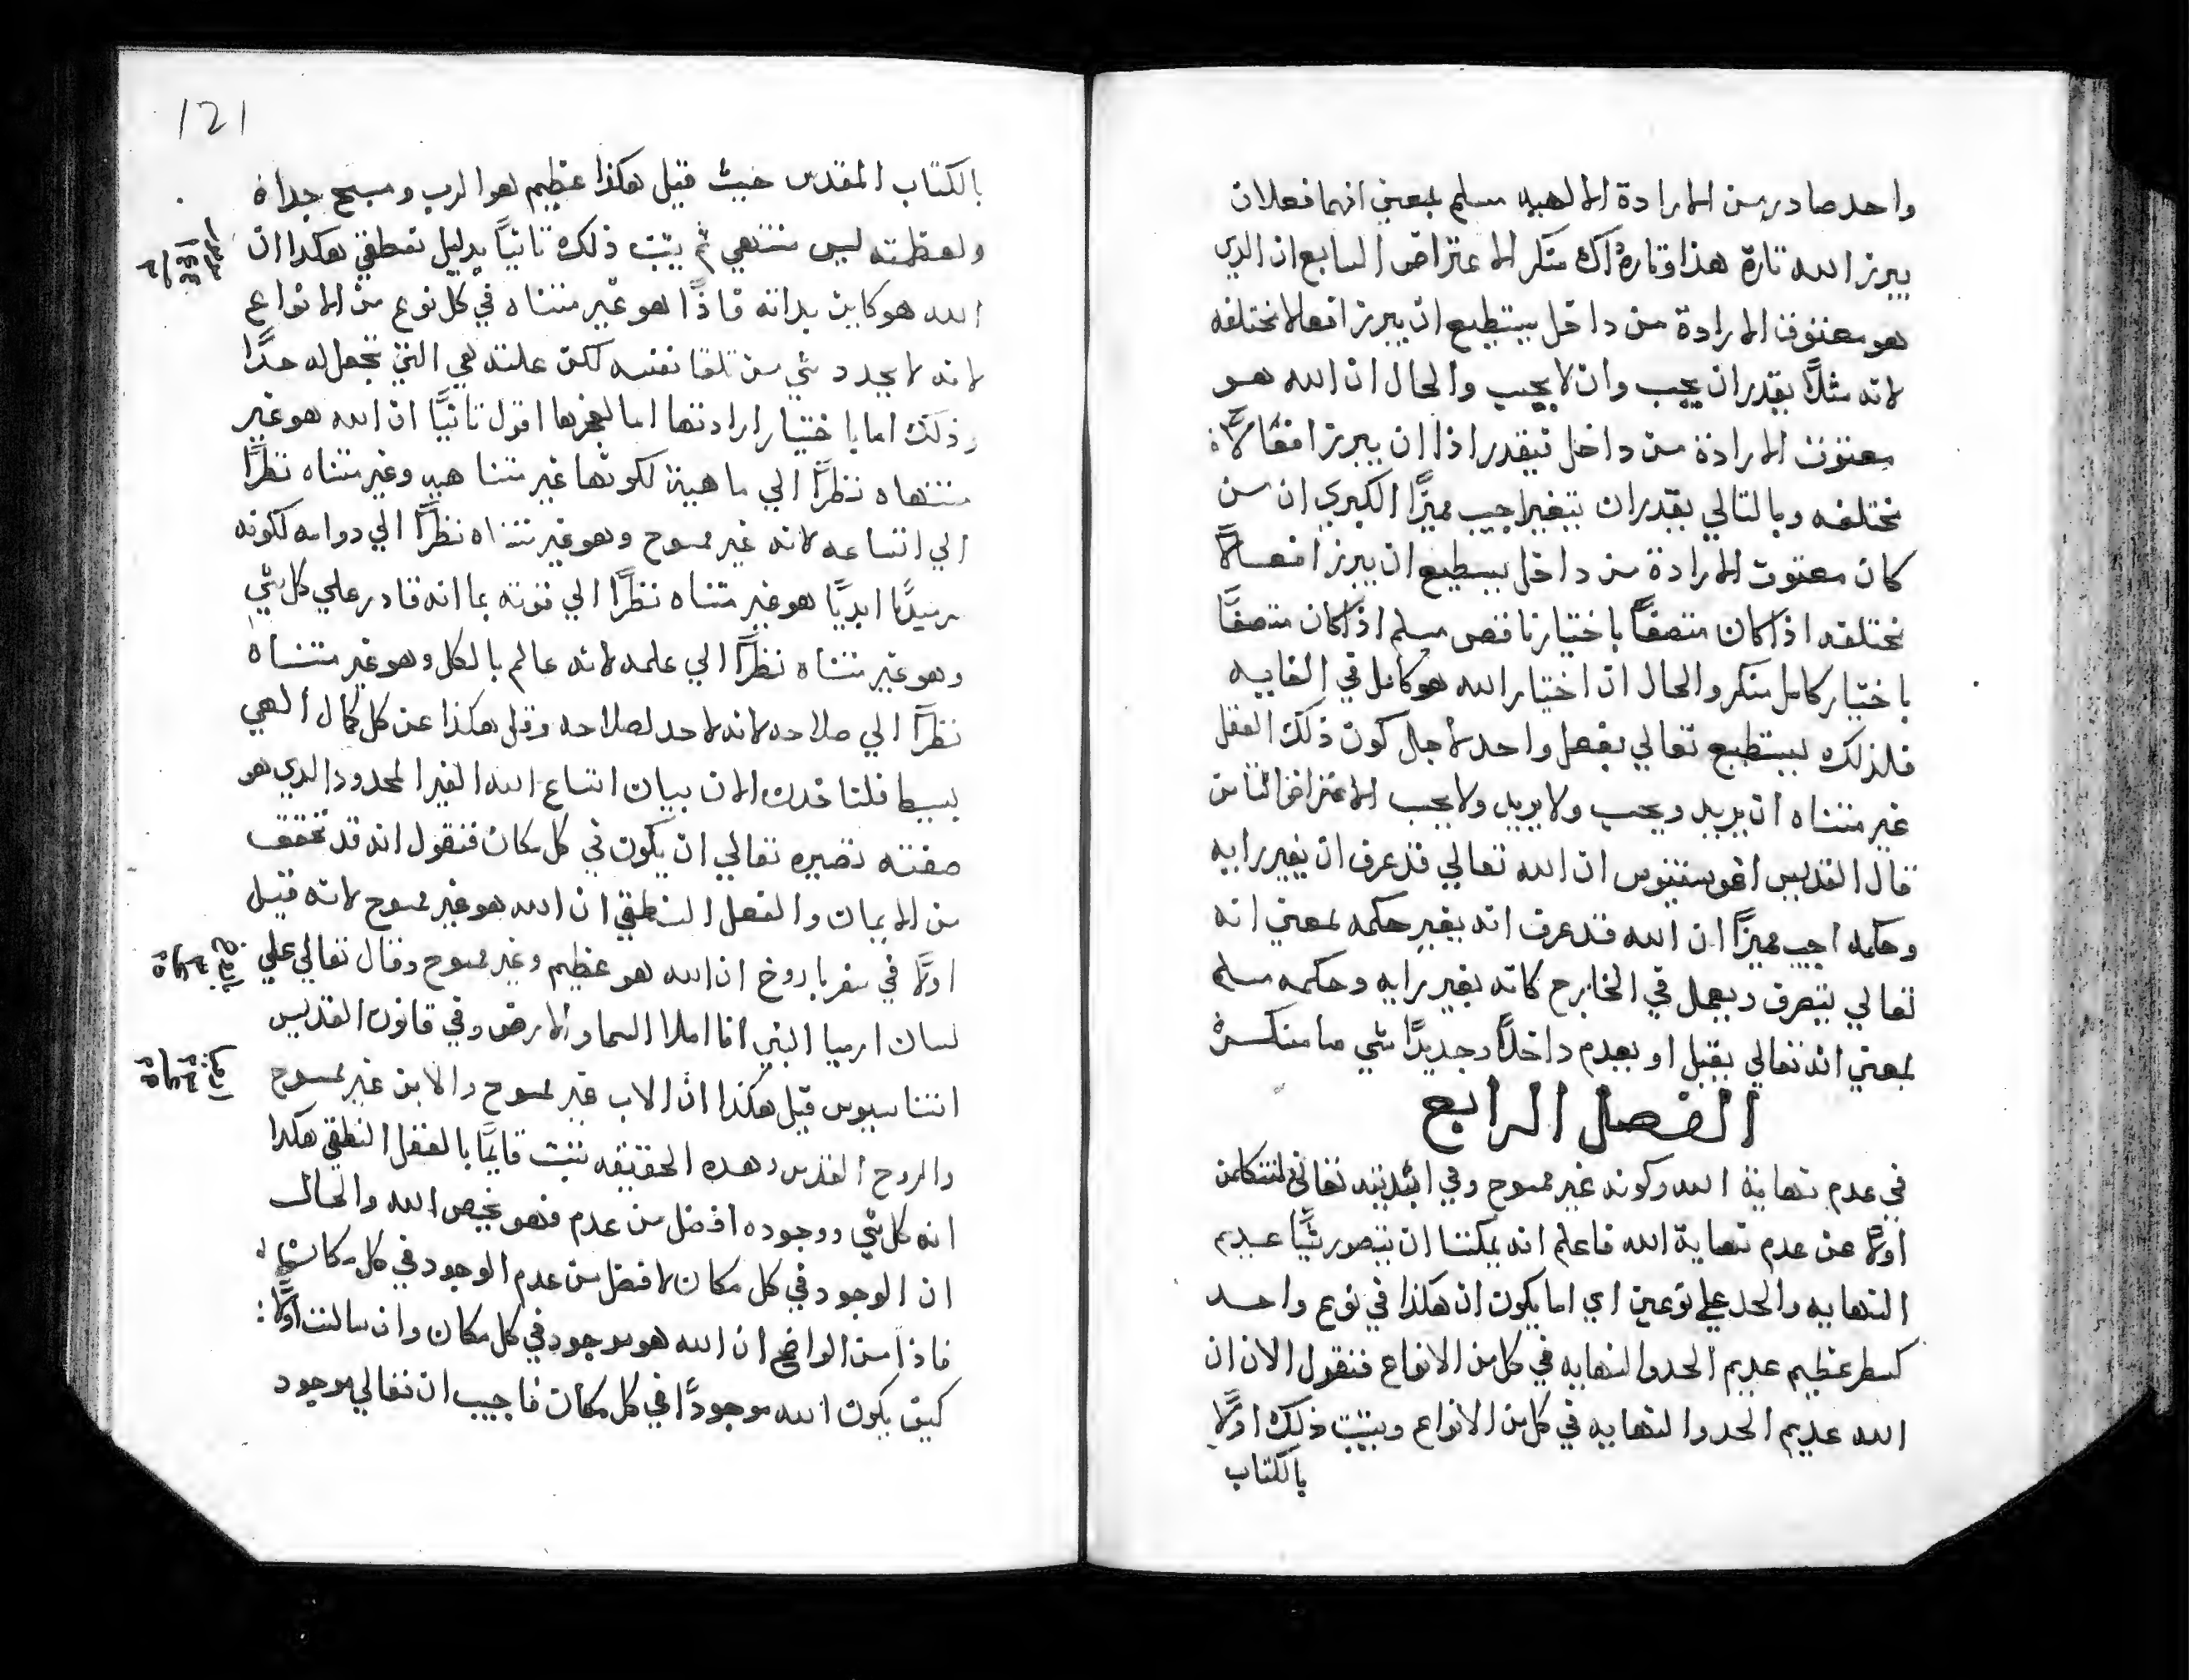 واحد صادر من الارادة الالهيه مسلم بمعني انهما فعلان
يبرز الله تارة هذا وتارة ذاك منكر الاعتراض السابع ان الذي
هو معتوق الارادة من داخل يستطيع ان يبرز افعالا مختلفه
لانه مثلاً يقدر ان يحب وان لا يحب والحال ان الله هو
معتوق الارادة من داخل فيقدر اذا ان يبرز افعالاً
مختلفه وبالتالي يقدر ان يتغير اجيب مميزًا الكبري ان من
كان معتوق الارادة من داخل يستطيع ان يبرز افعالاً
مختلفه اذا كان متصفًا باختيار ناقص مسلم اذا كان متصفًا
باختيار كامل منكر والحال ان اختيار الله هو كامل في الغايه
فلذلك يستطيع تعالي بفعل واحد لاجل كون ذلك الفعل
غير متناه ان يريد ويحب ولا يريد ولا يحب الاعتراض الثامن
قال القديس اغوستينوس ان الله تعالي قد عرف ان يغير رايه
وحكمه اجيب مميزًا ان الله قد عرف انه يغير حكمه بمعني انه
تعالي يتصرف ويعمل في الخارج كانه يغير رايه وحكمه مسلم
بمعني انه تعالي يقبل او يعدم داخلاً وجديدًا شي ما منكر
الفصل الرابع
في عدم نهاية الله وكونه غير ممسوح وفي ابديته تعالي لنتكلمن
اولاً عن عدم نهاية الله فاعلم انه يمكننا ان نتصور شيًا عديم
النهايه والحد علي نوعين اي اما يكون ان هكذا في نوع واحد
كسطر عظيم عديم الحد والنهايه في كل من الانواع فنقول الان ان
الله عديم الحد والنهايه في كل من الانواع ويثبت ذلك اولاً
بالكتاب
121
بالكتاب المقدس حيث قيل هكذا عظيم هو الرب ومسبح جدا
ولعظمته ليس منتهي ثم يثبت ذلك ثانيًا بدليل نطقي هكذا ان
الله هو كاين بذاته فاذًا هو غير متناه في كل نوع من الانواع
لانه لا يحدد شي من تلقا نفسه لكن علته هي التي تجعل له حدًا
وذلك اما باختيار ارادتها اما لعجزها اقول ثانيًا ان الله هو غير
متناه نظرًا الي ماهية لكونها غير متناهيه وغير متناه نظرًا
الي اتساعه لانه غير ممسوح وهو غير متناه نظرًا الي دوامه لكونه
سرمديًا ابديًا هو غير متناه نظرًا الي قوته بما انه قادر علي كل شي
وهو غير متناه نظرًا الي علمه لانه عالم بالكل وهو غير متناه
نظرًا الي صلاحه لانه لا حد لصلاحه وقل هكذا عن كل كمال الهي
بسيط فلناخذن الان بيان اتساع الله الغير المحدود الذي هو
صفته تصيره تعالي ان يكون في كل مكان فنقول انه قد تحقق
من الايمان والعقل النطقي ان الله هو غير ممسوح لانه قيل
اولاً في سفر باروخ ان الله هو عظيم وغير ممسوح وقال تعالي علي
لسان ارميا النبي انا املا السما والارض وفي قانون القديس
اتناسيوس قيل هكذا ان الاب غير ممسوح والابن غير ممسوح
والروح القدس وهذه الحقيقه تثبت قايمًا بالعقل النطقي هكذا
انه كل شي ووجوده افضل من عدم فهو يخص الله والحال
ان الوجود في كل مكان لافضل من عدم الوجود في كل مكان
فاذًا من الواضح ان الله هو موجود في كل مكان وان سالت اولاً:
كيف يكون الله موجودًا في كل مكان فاجيب ان تعالي موجود